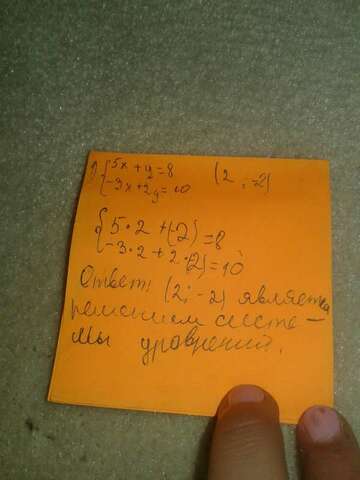 1) { 5x + y = 8 (2 ; -2)
-3x + 2y = 10
{ 5·2 + (-2) = 8
-3·2 + 2·2) = 10
Ответ: (2; -2) является
решением систе-
мы уравнений.